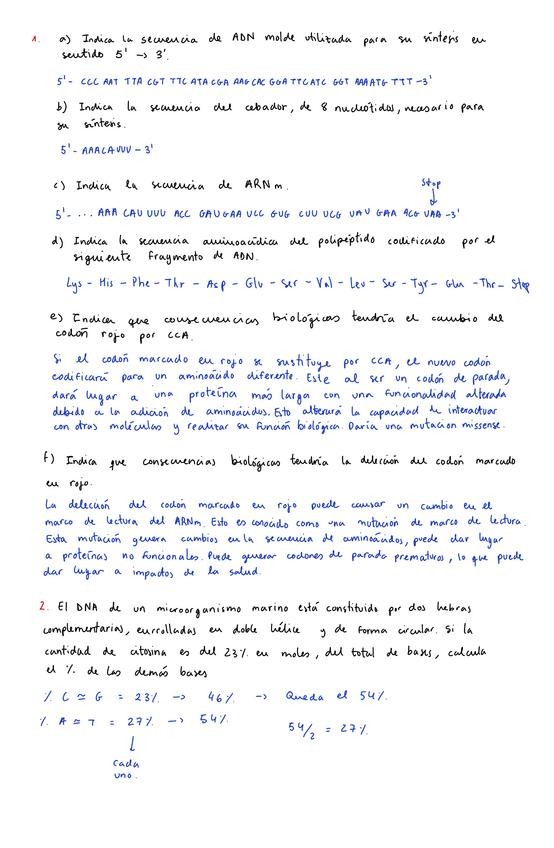 1. a) Indica la secuencia de ADN molde utilizada para su síntesis en
sentido 5' -> 3'.
5'- CCC AAT TTA CGT TTC ATA CGA AAG CAC GGA TTC ATC GGT AAA ATG TTT -3'
b) Indica la secuencia del cebador, de 8 nucleótidos, necesario para
su síntesis.
5'- AAACAUUU - 3'
c) Indica la secuencia de ARNm.
Stop
5'- ... AAA CAU UUU ACC GAU GAA UCC GUG CUU UCG UAU GAA ACG UAA -3'
d) Indica la secuencia aminoacídica del polipéptido codificado por el
siguiente fragmento de ADN.
Lys - His - Phe - Thr - Asp - Glu - Ser - Val - Leu - Ser - Tyr - Glu - Thr - Stop
e) Indica que consecuencias biológicas tendría el cambio del
codón rojo por CCA.
Si el codón marcado en rojo se sustituye por CCA, el nuevo codón
codificará para un aminoácido diferente. Este al ser un codón de parada,
dará lugar a una proteína más larga con una funcionalidad alterada
debido a la adición de aminoácidos. Esto alterará la capacidad de interactuar
con otras moléculas y realizar su función biológica. Daría una mutacion missense.
f) Indica que consecuencias biológicas tendría la deleción del codón marcado
en rojo.
La deleción del codón marcado en rojo puede causar un cambio en el
marco de lectura del ARNm. Esto es conocido como una mutación de marco de lectura.
Esta mutación genera cambios en la secuencia de aminoácidos, puede dar lugar
a proteínas no funcionales. Puede generar codones de parada prematuros, lo que puede
dar lugar a impactos de la salud.
2. El DNA de un microorganismo marino está constituido por dos hebras
complementarias, enrrolladas en doble hélice y de forma circular. Si la
cantidad de citosina es del 23% en moles, del total de bases, calcula
el % de las demás bases
% C ≃ G = 23% -> 46% -> Queda el 54%.
% A ≃ T = 27% -> 54%. 54/2 = 27%.
cada
uno.